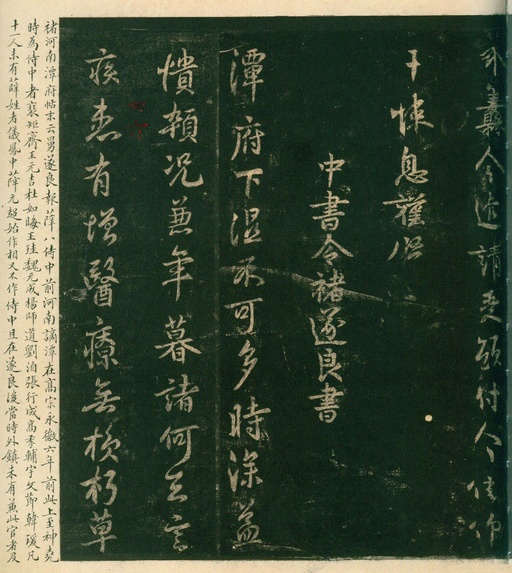 人請更願付今使仰
干悚息謹
中書令褚遂良書
潭府下濕不可多時深益
憒頽況兼年暮諸何足言
疾患有增醫療無損朽草
褚河南潭府帖末云男遂良報薛八侍中前河南謫潭在高宗永徽六年前此上至神堯
時為侍中者裴矩齊王元吉杜如晦王珪魏元成楊師道劉洎張行成高季輔宇文節韓瑗凡
十一人未有薛姓者儀鳳中薛元超始作相又不作侍中且在遂良後當時外鎮未有兼此官者及